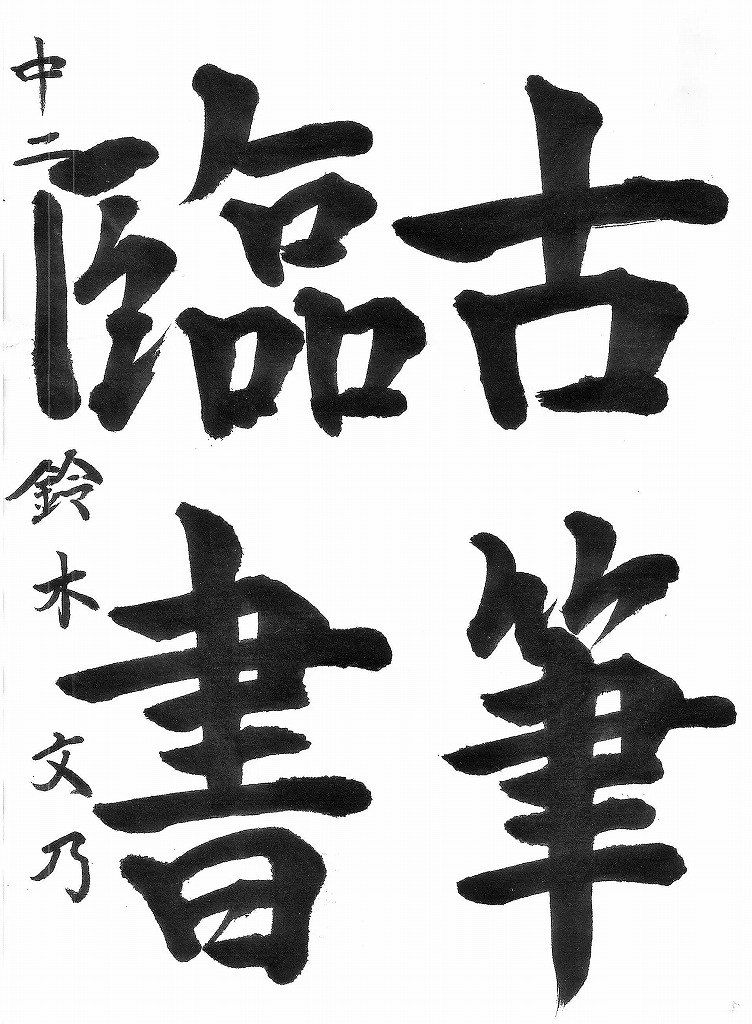 古筆
臨書
中二 鈴木 文乃